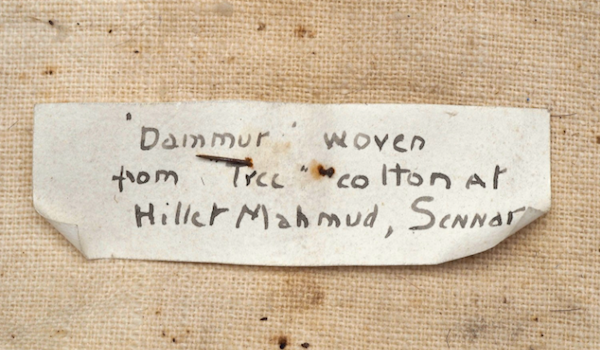 "Dammur" woven
from "Tree" cotton at
Hillet Mahmud, Sennar